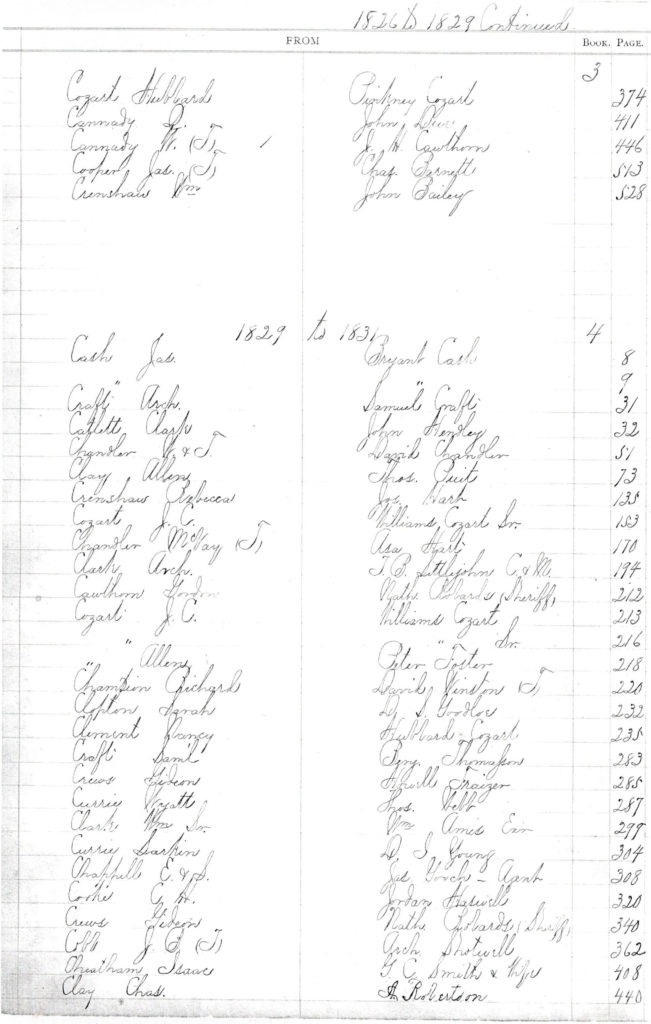 1826 to 1829 Continued.
FROM BOOK. PAGE.
3
Cozart Hubbard Pinkney Cozart 374
Cannady D. John 411
Cannady W. (T) J. H. Cawthorn 446
Cooper Jas. (T) Chas. Barnett 513
Crenshaw Wm John Bailey 528
1829 to 1831 4
Cash Jas. Bryant Cash 8
" " 9
Craft Arch. Samuel Craft 31
Catlett Clark John Hendley 32
Chandler W. & T. David Chandler 51
Clay Allen Thos. 73
Crenshaw Rebecca Jos. Hart 135
Cozart J. C. Williams Cozart Sr. 153
Chandler McKay (T) Asa Hart 170
Clark Arch. T. B. Littlejohn C. & M. 194
Cawthorn Gordon Nath. Robards, Sheriff, 212
Cozart J. C. Williams Cozart 213
" " Sr. 216
" Allen Peter Foster 218
Champion Richard David Winston (T) 220
Clopton Sarah D. S. Goodloe 232
Clement Nancy Hubbard Cozart 235
Craft Saml Benj. Thomasson 283
Crews Gideon Howell Fraizer 285
Currie Wyatt Thos. Webb 287
Clark Wm Sr. Wm Amis Exr 299
Currie Larkin D. T. Young 304
Chappell E. & S. Jas. Gooch - Agent 308
Cooke C. H. Jordan Haswell 320
Crews Gideon Nath. Robards, Sheriff, 340
Cobb J. B. (T) Arch. Shotwell 362
Cheatham Isaac G. C. Smith & Wife 408
Clay Chas. A Robertson 440